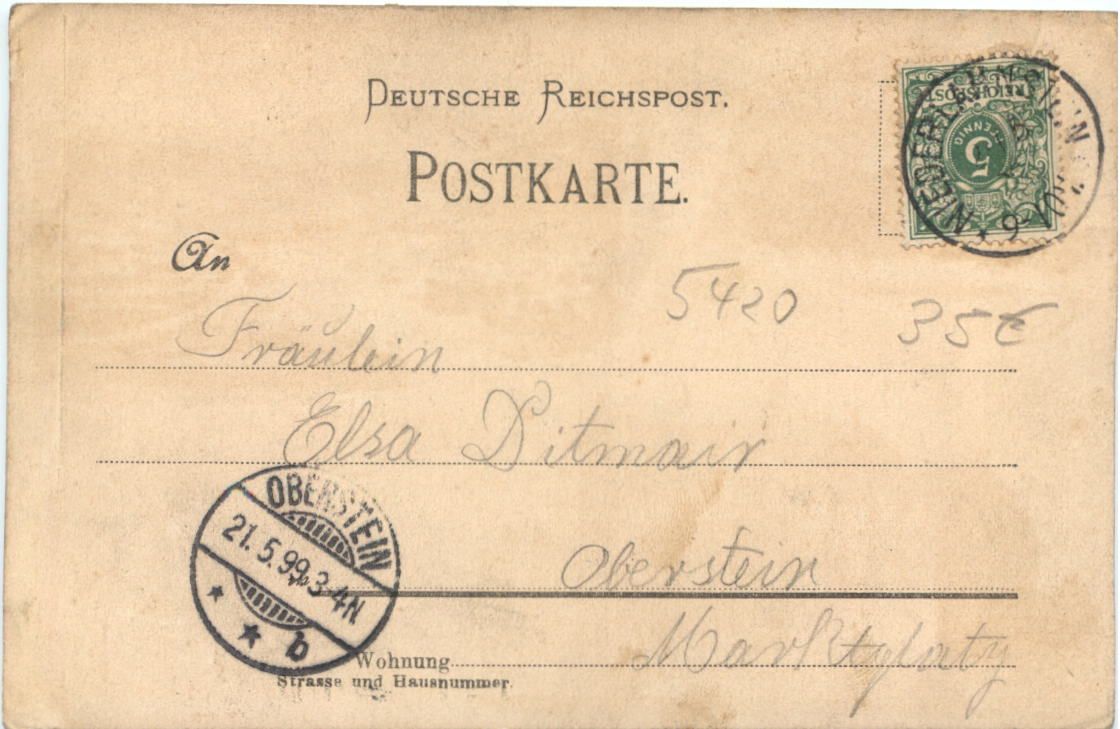 DEUTSCHE REICHSPOST.
POSTKARTE.
REICHSPOST
5
PFENNIG
NIEDERLAHNSTEIN
9-10V.
An
5420
35€
Fräulein
Elsa Ditmair
Oberstein
Marktplatz
OBERSTEIN
21.5.99.3-4N.
b
Wohnung
Strasse und Hausnummer.